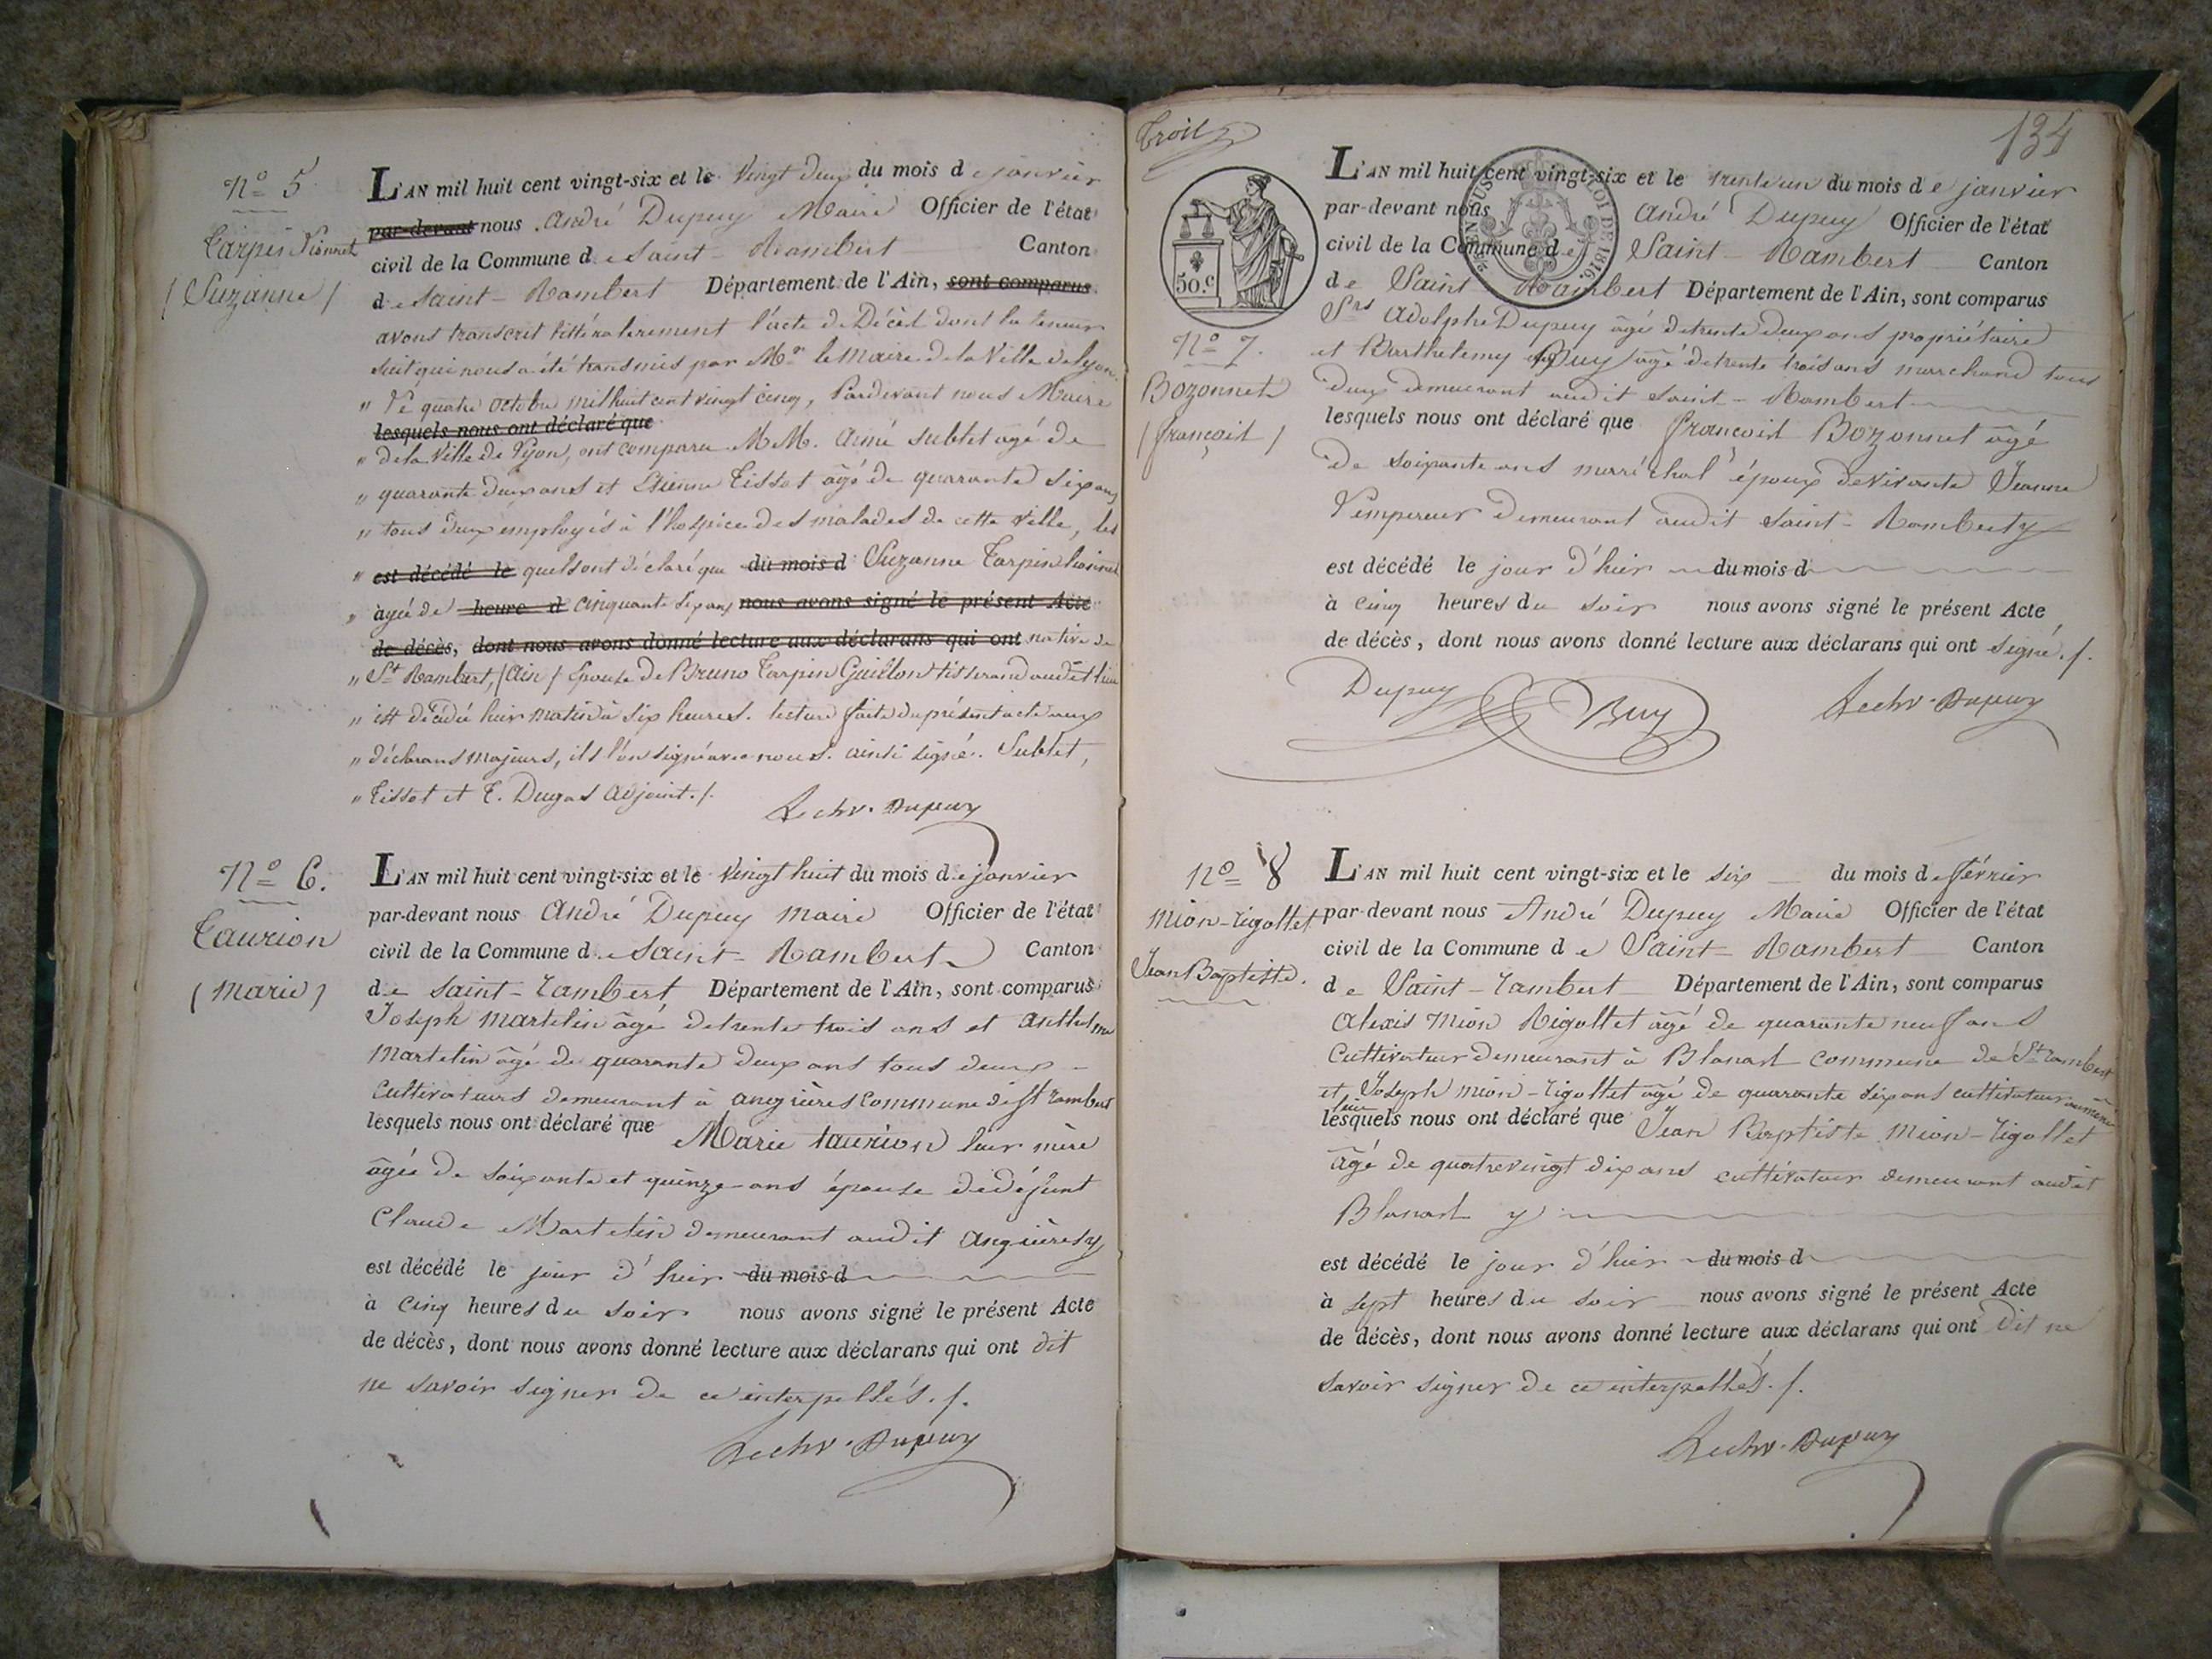 N.o 5
Tarpin Lionnet
(Suzanne)
L'AN mil huit cent vingt-six et le vingt deux du mois de janvier
par-devant nous André Dupuy Maire Officier de l'état
civil de la Commune de Saint-Rambert Canton
de Saint-Rambert Département de l'Ain, sont comparus
avons transcrit littéralement l'acte de Décès dont la teneur
suit qui nous a été transmis par Mr le Maire de la Ville de Lyon.
" Le quatre octobre mil huit cent vingt cinq, Pardevant nous Maire
lesquels nous ont déclaré que
" de la Ville de Lyon, ont comparu MM. Aimé Sublet agé de
" quarante deux ans et Etienne Tissot âgé de quarante six ans
" tous deux employés à l'hospice des malades de cette ville, les
" est décédé le quels ont déclaré que du mois d Suzanne Tarpin Lionnet
" agée de heure d cinquante six ans nous avons signé le présent Acte
de décès, dont nous avons donné lecture aux déclarans qui ont native de
" St Rambert, (Ain) Epouse de Bruno Tarpin Guillon tisserand audit lieu
" est décédée hier matin à six heures. lecture faite du présent acte aux
" déclarans majeurs, ils l'on signé avec nous. ainsi signé. Sublet,
" Tissot et T. Dugas adjoint./.
Dupuy
N.o 6.
Taurion
(Marie)
L'AN mil huit cent vingt-six et le vingt huit du mois de janvier
par-devant nous André Dupuy Maire Officier de l'état
civil de la Commune de Saint-Rambert Canton
de Saint-Rambert Département de l'Ain, sont comparus
Joseph Martelin âgé de trente trois ans et Anthelme
Martelin âgé de quarante deux ans tous deux
cultivateurs demeurant à angrières commune de St Rambert
lesquels nous ont déclaré que Marie taurion leur mère
âgée de soixante et quinze ans épouse de défunt
Claude Martelin demeurant audit angrières
est décédé le jour d'hier du mois d
à cinq heures du soir nous avons signé le présent Acte
de décès, dont nous avons donné lecture aux déclarans qui ont dit
ne savoir signer de ce interpellés./.
Dupuy
Trois
134
50.c
LOI DE 1816.
L'AN mil huit cent vingt-six et le trente un du mois de janvier
par-devant nous André Dupuy Officier de l'état
civil de la Commune de Saint-Rambert Canton
de Saint Rambert Département de l'Ain, sont comparus
Srs Adolphe Dupuy âgé de trente deux ans propriétaire
N.o 7.
Bozonnet
(françois)
et Barthelemy Buy âgé de trente trois ans marchand tous
deux demeurant audit Saint-Rambert
lesquels nous ont déclaré que François Bozonnet âgé
de soixante ans maréchal époux de vivante Jeanne
Lempereur demeurant audit Saint-Rambert
est décédé le jour d'hier du mois d
à cinq heures du soir nous avons signé le présent Acte
de décès, dont nous avons donné lecture aux déclarans qui ont signé./.
Dupuy Buy Dupuy
N.o 8
Mion-Rigollet
Jean Baptiste.
L'AN mil huit cent vingt-six et le six du mois de février
par-devant nous André Dupuy Maire Officier de l'état
civil de la Commune de Saint-Rambert Canton
de Saint-Rambert Département de l'Ain, sont comparus
Alexis Mion Rigollet âgé de quarante neuf ans
cultivateur demeurant à Blanas commune de St Rambert
et Joseph Mion-Rigollet âgé de quarante six ans cultivateur au même
lieu
lesquels nous ont déclaré que Jean Baptiste Mion-Rigollet
âgé de quatrevingt dix ans cultivateur demeurant audit
Blanas
est décédé le jour d'hier du mois d
à sept heures du soir nous avons signé le présent Acte
de décès, dont nous avons donné lecture aux déclarans qui ont dit ne
savoir signer de ce interpellés./.
Dupuy